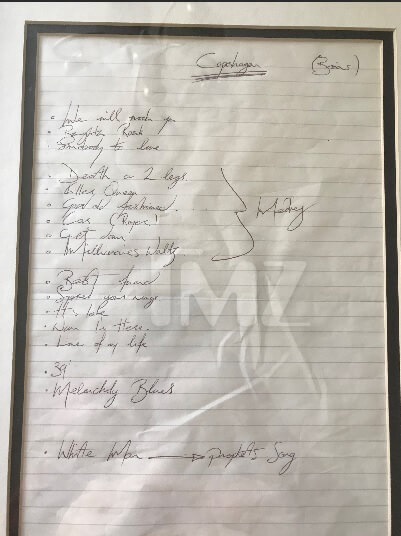 Copenhagen (Brians)
• We will rock you
• Brighton Rock
• Somebody to love
• Death on 2 legs
• Killer Queen
• Good old fashioned
• Cas (Rogers!)
• Get down
• Millionaires Waltz
Medley
• Best friend
• Spread your wings
• It's late
• Now I'm Here.
• Love of my life
• 39'
• Melancholy Blues
• White Man → Prophets Song
TMZ